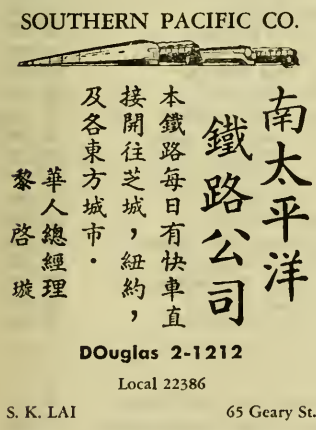 SOUTHERN PACIFIC CO.
南太平洋
鐵路公司
本鐵路每日有快車直
接開往芝城，紐約，
及各東方城市．
華人總經理
黎啓璇
DOuglas 2-1212
Local 22386
S. K. LAI 65 Geary St.